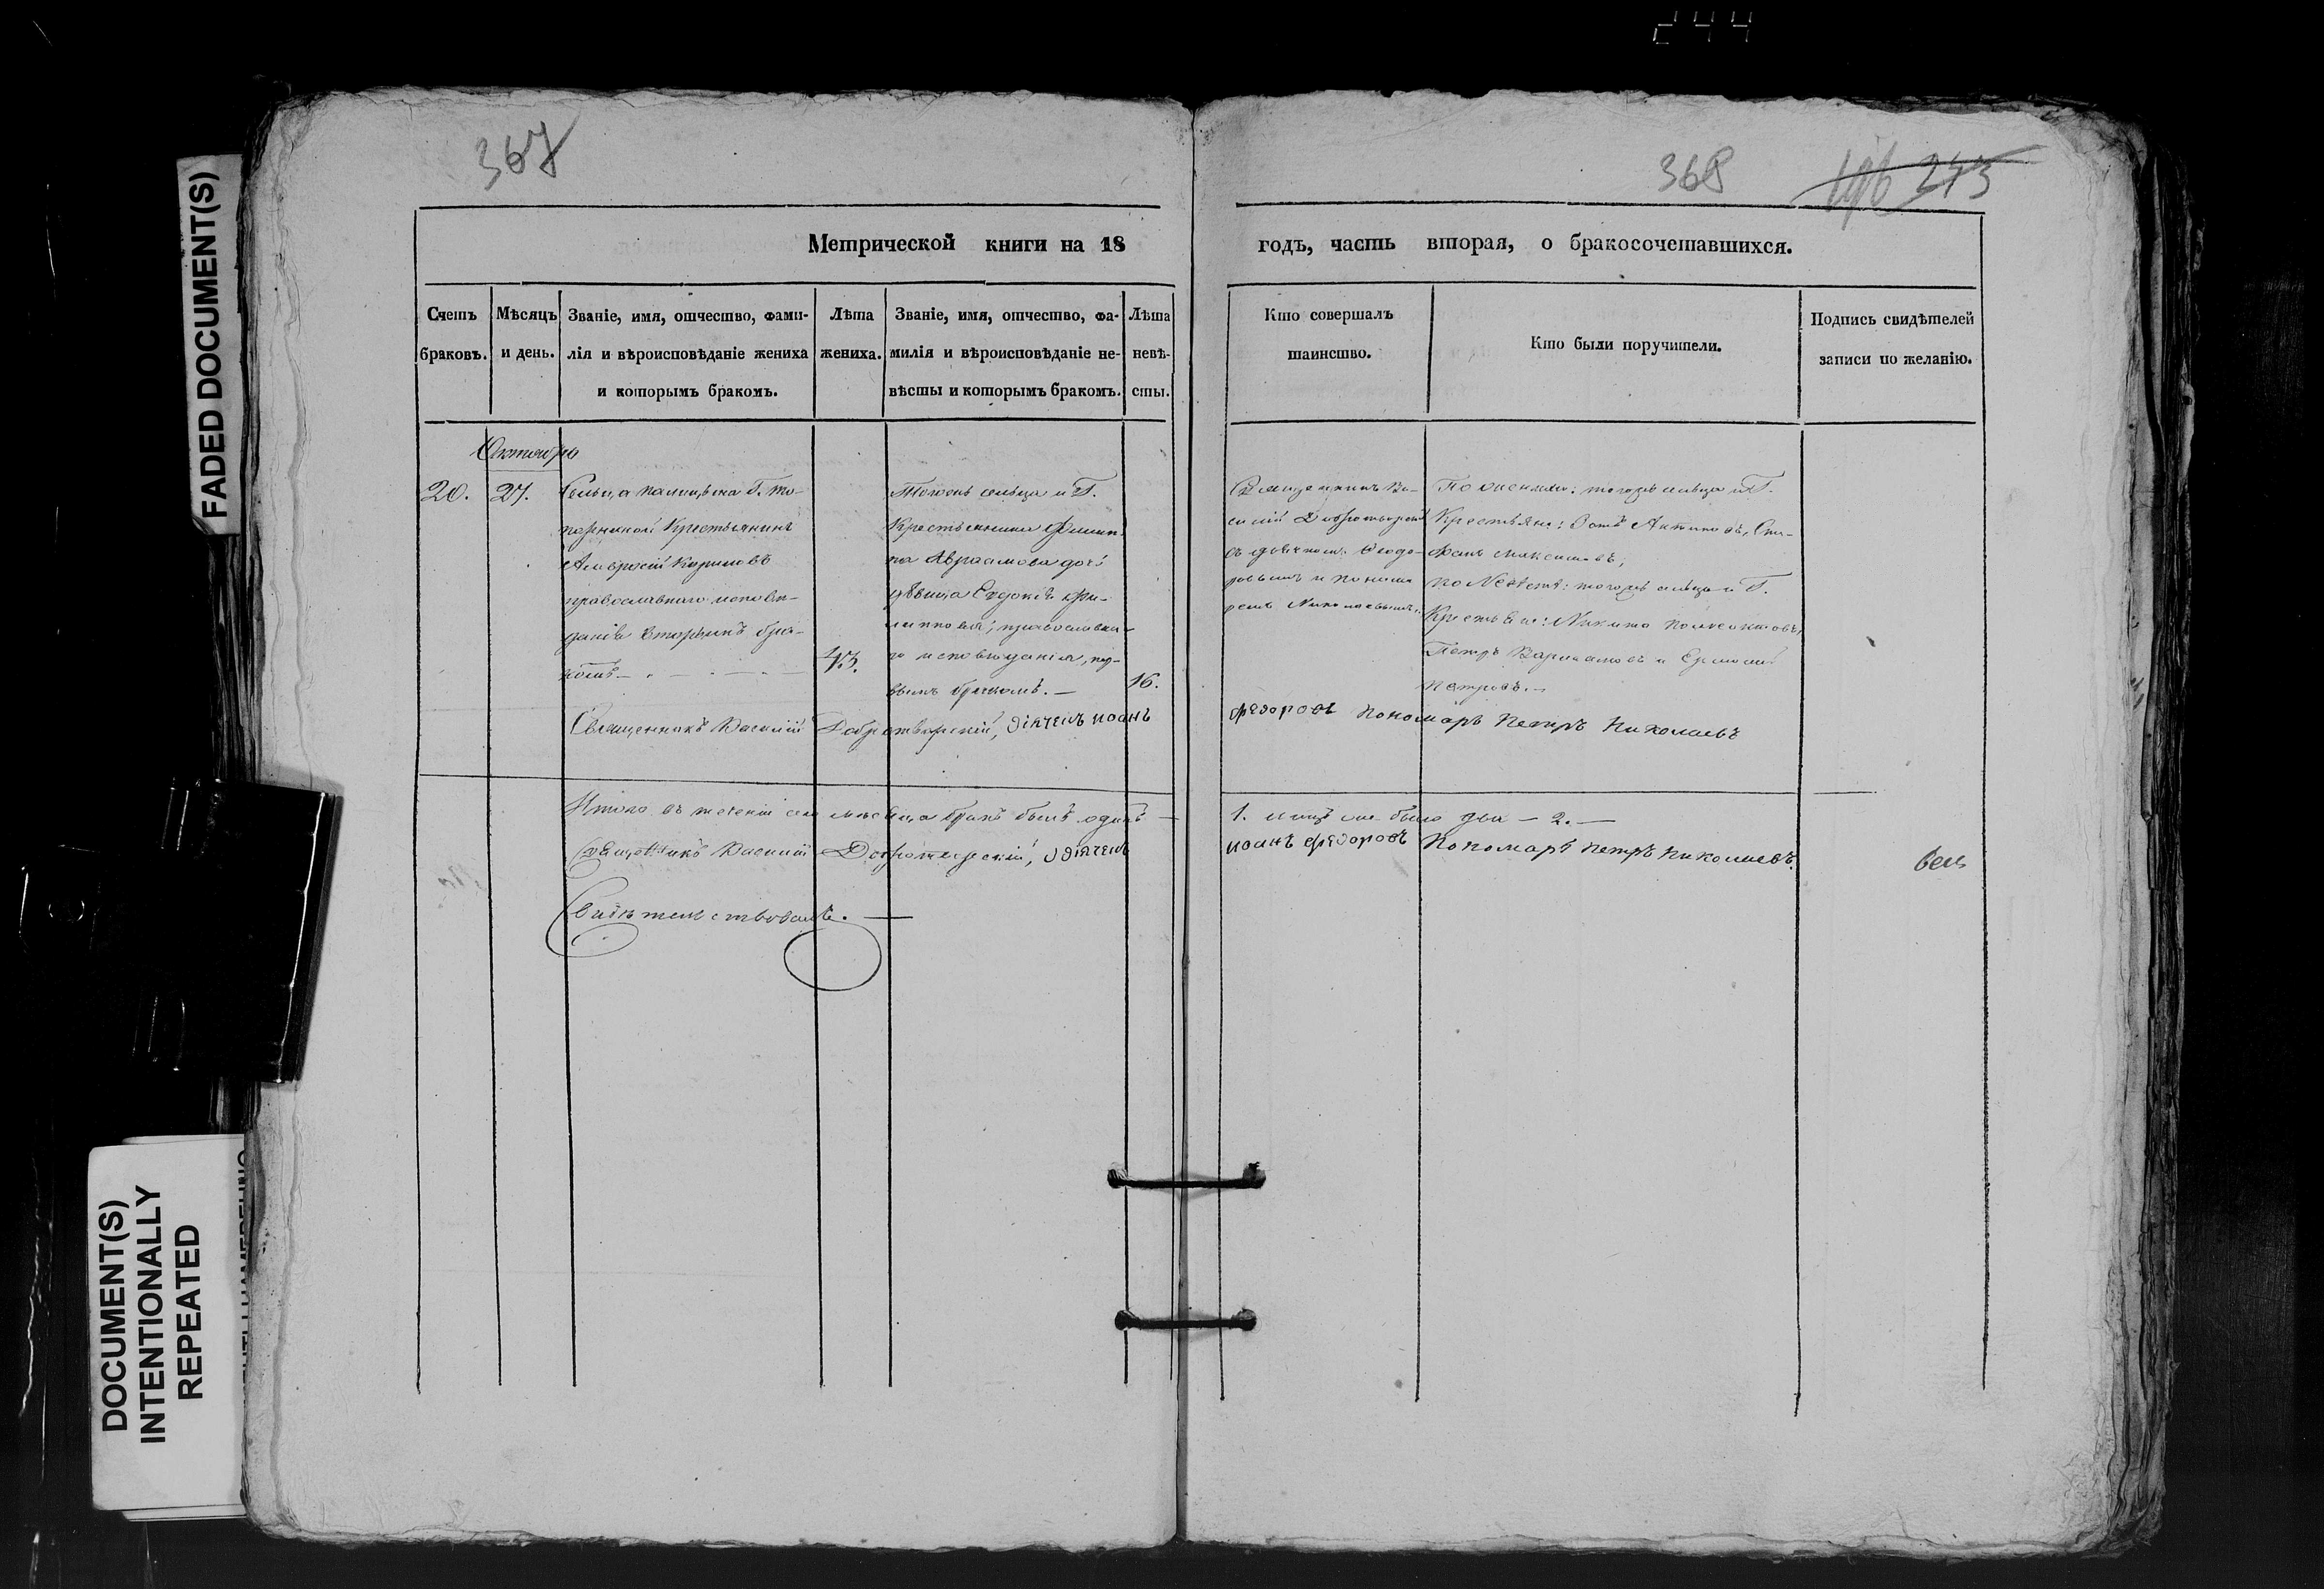 244
FADED DOCUMENT(S)
DOCUMENT(S)
INTENTIONALLY
REPEATED
367
368
196 243
Метрической книги на 18
годъ, часть вторая, о бракосочетавшихся.
Счетъ
браковъ.
Мѣсяцъ
и день.
Званіе, имя, отчество, фами-
лія и вѣроисповѣданіе жениха
и которымъ бракомъ.
Лѣта
жениха.
Званіе, имя, отчество, фа-
милія и вѣроисповѣданіе не-
вѣсты и которымъ бракомъ.
Лѣта
невѣ-
сты.
Кто совершалъ
таинство.
Кто были поручители.
Подпись свидѣтелей
записи по желанію.
Октябрь
20.
27.
Сельца Г.
Крестьянинъ
Амвросій
православнаго исповѣ-
данія вторымъ бра-
комъ
43.
Тогожъ сельца и Г.
Крестьянина Филип-
па Авраамова дочь
дѣвица Евдокія Фи-
липпова, православна-
го исповѣданія, пер-
вымъ бракомъ.
16.
Священникъ Ва-
силій Добротворскій
съ дьячкомъ Ѳеодо-
ровымъ и понома-
ремъ Николаевымъ.
По женихѣ: тогожъ сельца и Г.
Крестьяне: Сте-
фанъ Максимовъ,
по Невѣстѣ: тогожъ сельца и Г.
Крестьяне: Никита
Петръ Варлаамовъ и
Петровъ.
Священникъ Василій Добротворскій, дьячекъ Иоанъ Федоровъ Пономарь Петръ Николаевъ
Итого въ теченіи сего мѣсяца бракъ былъ одинъ 1. лицъ было два 2.
Священникъ Василій Добротворскій, дьячекъ Иоанъ Федоровъ Пономарь Петръ Николаевъ.
Свидѣтельствовалъ.